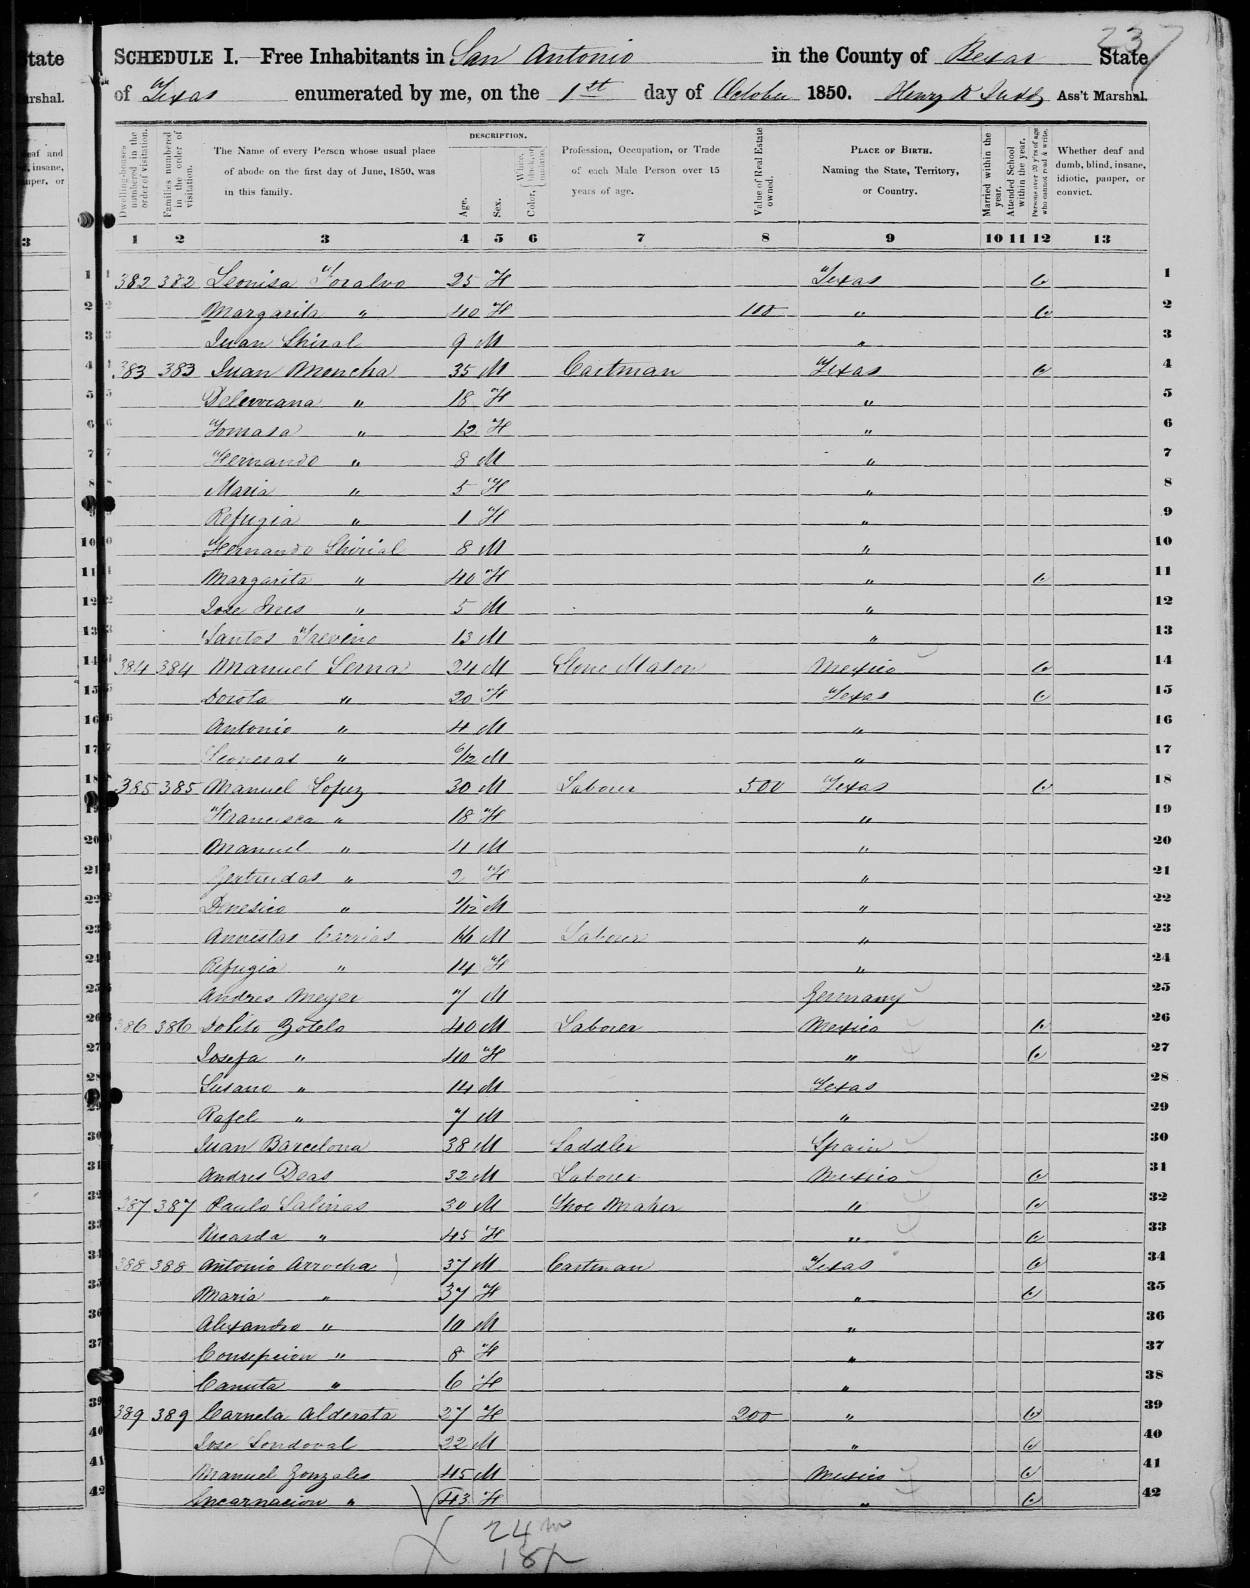 237
SCHEDULE I.—Free Inhabitants in San Antonio in the County of Bexar State
of Texas enumerated by me, on the 1st day of October 1850. Henry K Judd Ass't Marshal.
Dwelling-houses numbered in the order of visitation.
Families numbered in the order of visitation.
The Name of every Person whose usual place of abode on the first day of June, 1850, was in this family.
DESCRIPTION.
Age.
Sex.
Color, White, black, or mulatto.
Profession, Occupation, or Trade of each Male Person over 15 years of age.
Value of Real Estate owned.
PLACE OF BIRTH. Naming the State, Territory, or Country.
Married within the year.
Attended School within the year.
Persons over 20 y'rs of age who cannot read & write.
Whether deaf and dumb, blind, insane, idiotic, pauper, or convict.
1 2 3 4 5 6 7 8 9 10 11 12 13
1 382 382 Leonisa Toralvo 25 F Texas 1
2 Margarita " 40 F 100 " 2
3 Juan Shiral 9 M " 3
4 383 383 Juan Moncha 35 M Cartman Texas 4
5 " 18 F " 5
6 Tomasa " 12 F " 6
7 Fernando " 8 M " 7
8 Maria " 5 F " 8
9 Refugia " 1 F " 9
10 Fernando Shirial 8 M " 10
11 Margarita " 40 F " 11
12 Jose Ines " 5 M " 12
13 Santos Treveno 13 M " 13
14 384 384 Manuel Serna 24 M Stone Mason Mexico 14
15 Dorota " 20 F Texas 15
16 Antonio " 4 M " 16
17 " 6/12 M " 17
18 385 385 Manuel Lopez 30 M Laborer 500 Texas 18
19 Francisca " 18 F " 19
20 Manuel " 4 M " 20
21 Gertrudas " 2 F " 21
22 " M " 22
23 M Laborer " 23
24 Refugia " 14 F " 24
25 Andres Meyer 7 M Germany 25
26 386 386 Zotelo 40 M Laborer Mexico 26
27 Josefa " 40 F " 27
28 Susano " 14 M Texas 28
29 Rafel " 7 M " 29
30 Juan Barcelona 38 M Saddler Spain 30
31 Andres Deas 32 M Laborer Mexico 31
32 387 387 Paulo Salinas 30 M Shoe Maker " 32
33 Ricarda " 45 F " 33
34 388 388 Antonio Arrocha 37 M Cartman Texas 34
35 Maria " 37 F " 35
36 Alexandro " 10 M " 36
37 Consepcion " 8 F " 37
38 Canuta " 6 F " 38
39 389 389 Carmela Alderata 27 F 200 " 39
40 Jose Sendoval 22 M " 40
41 Manuel Gonzales 45 M Mexico 41
42 Encarnacion " 43 F " 42
24 m
18 f